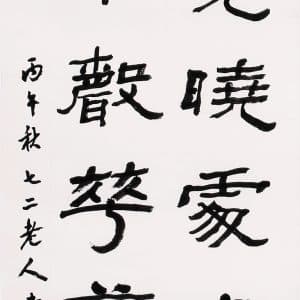 曉處
聲華
丙午秋七二老人